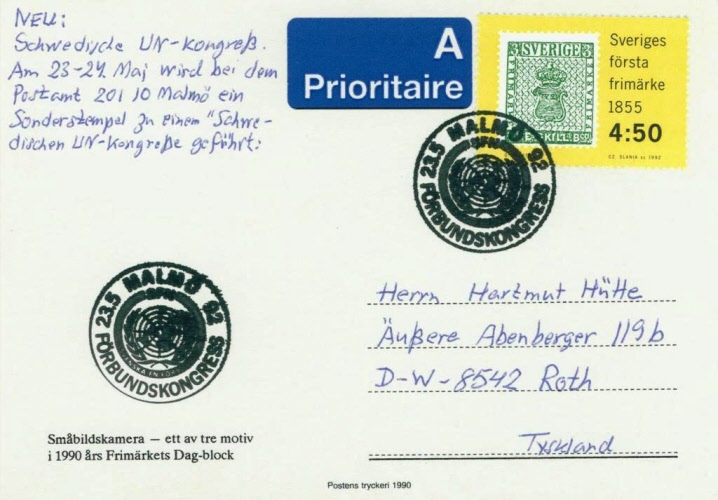 NEU:
Schwedische UN-Kongreß.
Am 23-24. Maj wird bei dem
Postamt 201 10 Malmö ein
Sonderstempel zu einem "Schwe-
dischen UN-Kongreße geführt:
A
Prioritaire
3 SVERIGE 3
Sveriges
första
frimärke
1855
4:50
CZ. SLANIA SC 1992
23.5 MALMÖ 92
SFN
FÖRBUNDSKONGRESS
23.5 MALMÖ 92
SFN
FÖRBUNDSKONGRESS
Herrn Hartmut Hütte
Äußere Abenberger 119b
D-W-8542 Roth
Tyskland
Småbildskamera – ett av tre motiv
i 1990 års Frimärkets Dag-block
Postens tryckeri 1990